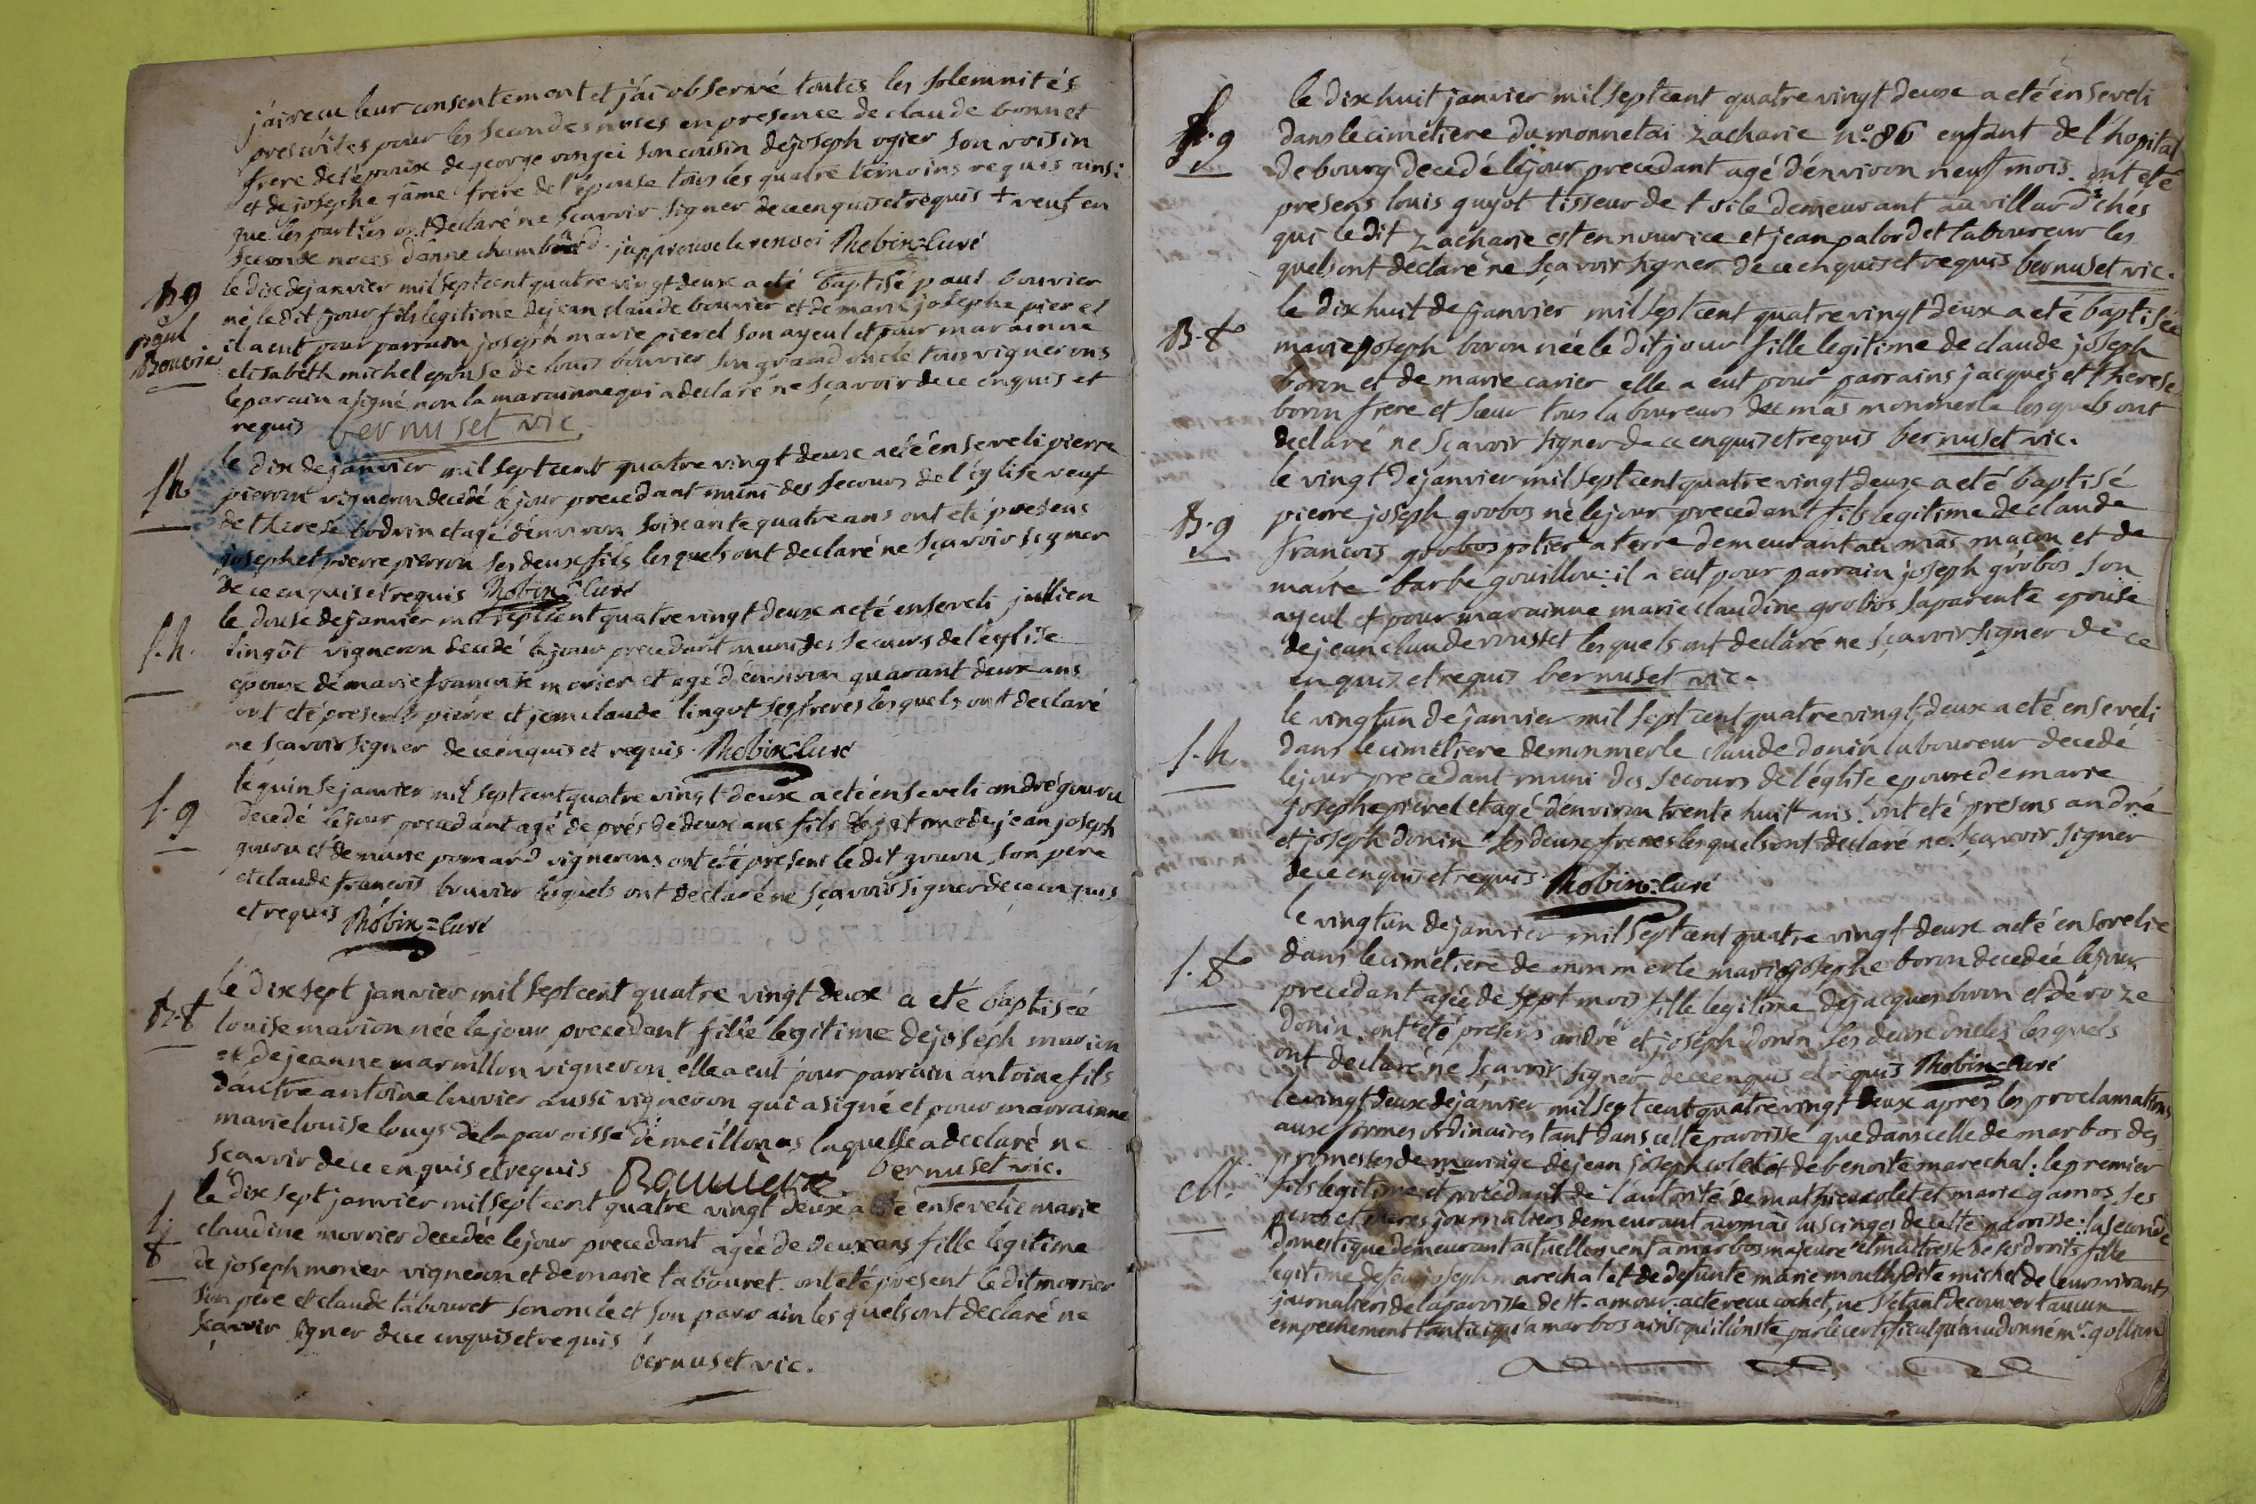 j'ai recu leur consentement et j'ai observé toutes les solemnités
prescrites pour les secondes noces en presence de claude bonnet
frere de l'epouse de george son cousin de joseph ogier son voisin
et de josephe game frere de l'epouse tous les quatre temoins requis ainsi
que les parties ont declaré ne sçavoir signer de ce enquis et requis + veuf en
seconde noces d'anne chambard j'approuve le renvoi Robin=Curé
B g
paul
Bouvier
le dix de janvier mil sept cent quatre vingt deux a eté baptisé paul bouvier
né le dit jour fils legitime de jean claude bouvier et de marie josephe pierel
il a eut pour parrain joseph marie pierel son ayeul et pour marainne
elisabeth michel epouse de louis bouvier son grand oncle tous vignerons
le parain a signé non la marainne qui a declaré ne sçavoir de ce enquis et
requis bernuset vic.
S h
le dix de janvier mil sept cent quatre vingt deux a eté enseveli pierre
pieront vigneron decedé le jour precedant muni des secours de l'eglise veuf
de therese bodvin et agé d'environ soixante quatre ans ont eté presens
joseph et pierre pieron ses deux fils lesquels ont declaré ne sçavoir signer
de ce enquis et requis Robin=Curé
S. h.
le douse de janvier mil sept cent quatre vingt deux a eté enseveli jullien
lingot vigneron decedé le jour precedant muni des secours de l'eglise
epoux de marie francoise morier et agé d'environ quarant deux ans
ont eté presents pierre et jean claude lingot ses freres lesquels ont declaré
ne sçavoir signer de ce enquis et requis. Robin=Curé
S. g
le quinse janvier mil sept cent quatre vingt deux a eté enseveli andré gouvu
decedé le jour precedant agé de prés de deux ans fils legitime de jean joseph
gouvu et de marie pomard vignerons ont eté presens le dit gouvu son pere
et claude francois bouvier lesquels ont declaré ne sçavoir signer de ce enquis
et requis Robin=Curé
B. f
le dix sept janvier mil sept cent quatre vingt deux a eté baptiseé
louise marion née le jour precedant fille legitime de joseph marion
et de jeanne marmillon vigneron elle a eut pour parrain antoine fils
d'autre antoine buvier aussi vigneron qui a signé et pour marrainne
marie louise louys de la paroisse de meillonas laquelle a declaré ne
scavoir de ce enquis et requis Bouvier bernuset vic.
S.
f
le dix sept janvier mil sept cent quatre vingt deux a eté ensevelie marie
claudine morrier decedée le jour precedant agée de deux ans fille legitime
de joseph morier vigneron et de marie tabouret. ont eté present le dit morrier
son pere et claude tabouret son oncle et son parrain lesquels ont declaré ne
sçavoir signer de ce enquis et requis
bernuset vic.
S. g
le dix huit janvier mil sept cent quatre vingt deux a eté enseveli
dans le cimetiere du monnetai zacharie n°. 86 enfant de l'hopital
de bourg decedé le jour precedant agé d'environ neuf mois. ont eté
presens louis guyot tisseur de toile demeurant au villard chés
qui le dit zacharie est en nourice et jean palordet laboureur les
quels ont declaré ne sçavoir signer de ce enquis et requis bernuset vic.
B. f
le dix huit de janvier mil sept cent quatre vingt deux a eté baptisée
marie joseph boron née le dit jour fille legitime de claude joseph
boron et de marie carier elle a eut pour parrains jacques et therese
boron frere et sœur tous laboureurs de mas monmerle lesquels ont
declaré ne sçavoir signer de ce enquis et requis bernuset vic.
B. g
le vingt de janvier mil sept cent quatre vingt deux a eté baptisé
pierre joseph grobos né le jour precedant fils legitime de claude
francois grobos potier a terre demeurant au mas macon et de
marie barbe gouillon: il a eut pour parrain joseph grobos son
ayeul et pour marainne marie claudine grobos sa parente epouse
de jean claude rousset lesquels ont declaré ne sçavoir signer de ce
enquis et requis bernuset vic.
S. h.
le vingt un de janvier mil sept cent quatre vingt deux a eté enseveli
dans le cimetiere de monmerle claude donin laboureur decedé
le jour precedant muni des secours de l'eglise epoux de marie
josephe pierel et agé d'environ trente huit ans: ont eté presens andré
et joseph donin ses deux freres lesquels ont declaré ne sçavoir signer
de ce enquis et requis Robin=Curé
S. f
le vingt un de janvier mil sept cent quatre vingt deux a eté ensevelie
dans le cimetiere de monmerle marie josephe boron decedée le jour
precedant agée de sept mois fille legitime de jacques boron et de roze
donin. ont eté presens andré et joseph donin ses deux oncles lesquels
ont declaré ne sçavoir signer de ce enquis et requis Robin=Curé
M.
le vingt deux de janvier mil sept cent quatre vingt deux apres les proclamations
aux formes ordinaires tant dans cette paroisse que dans celle de marbos des
promesses de mariage de jean joseph colet et de benoite marechal: le premier
fils legitime et procedant de l'autorité de mathieu colet et marie gamos ses
pere et mere journaliers demeurant au mas de cette paroisse: la seconde
domestique demeurant actuellement a marbos majeure et maitresse de ses droits fille
legitime de feu joseph marechal et de defunte marie mouth dite michel de leur vivants
journaliers de la paroisse de st. amour: acte recu cochet, ne s'etant decouvert aucun
empechement tant ici qu'a marbos ainsi qu'il conste par le certificat qu'en a donné mr. golland